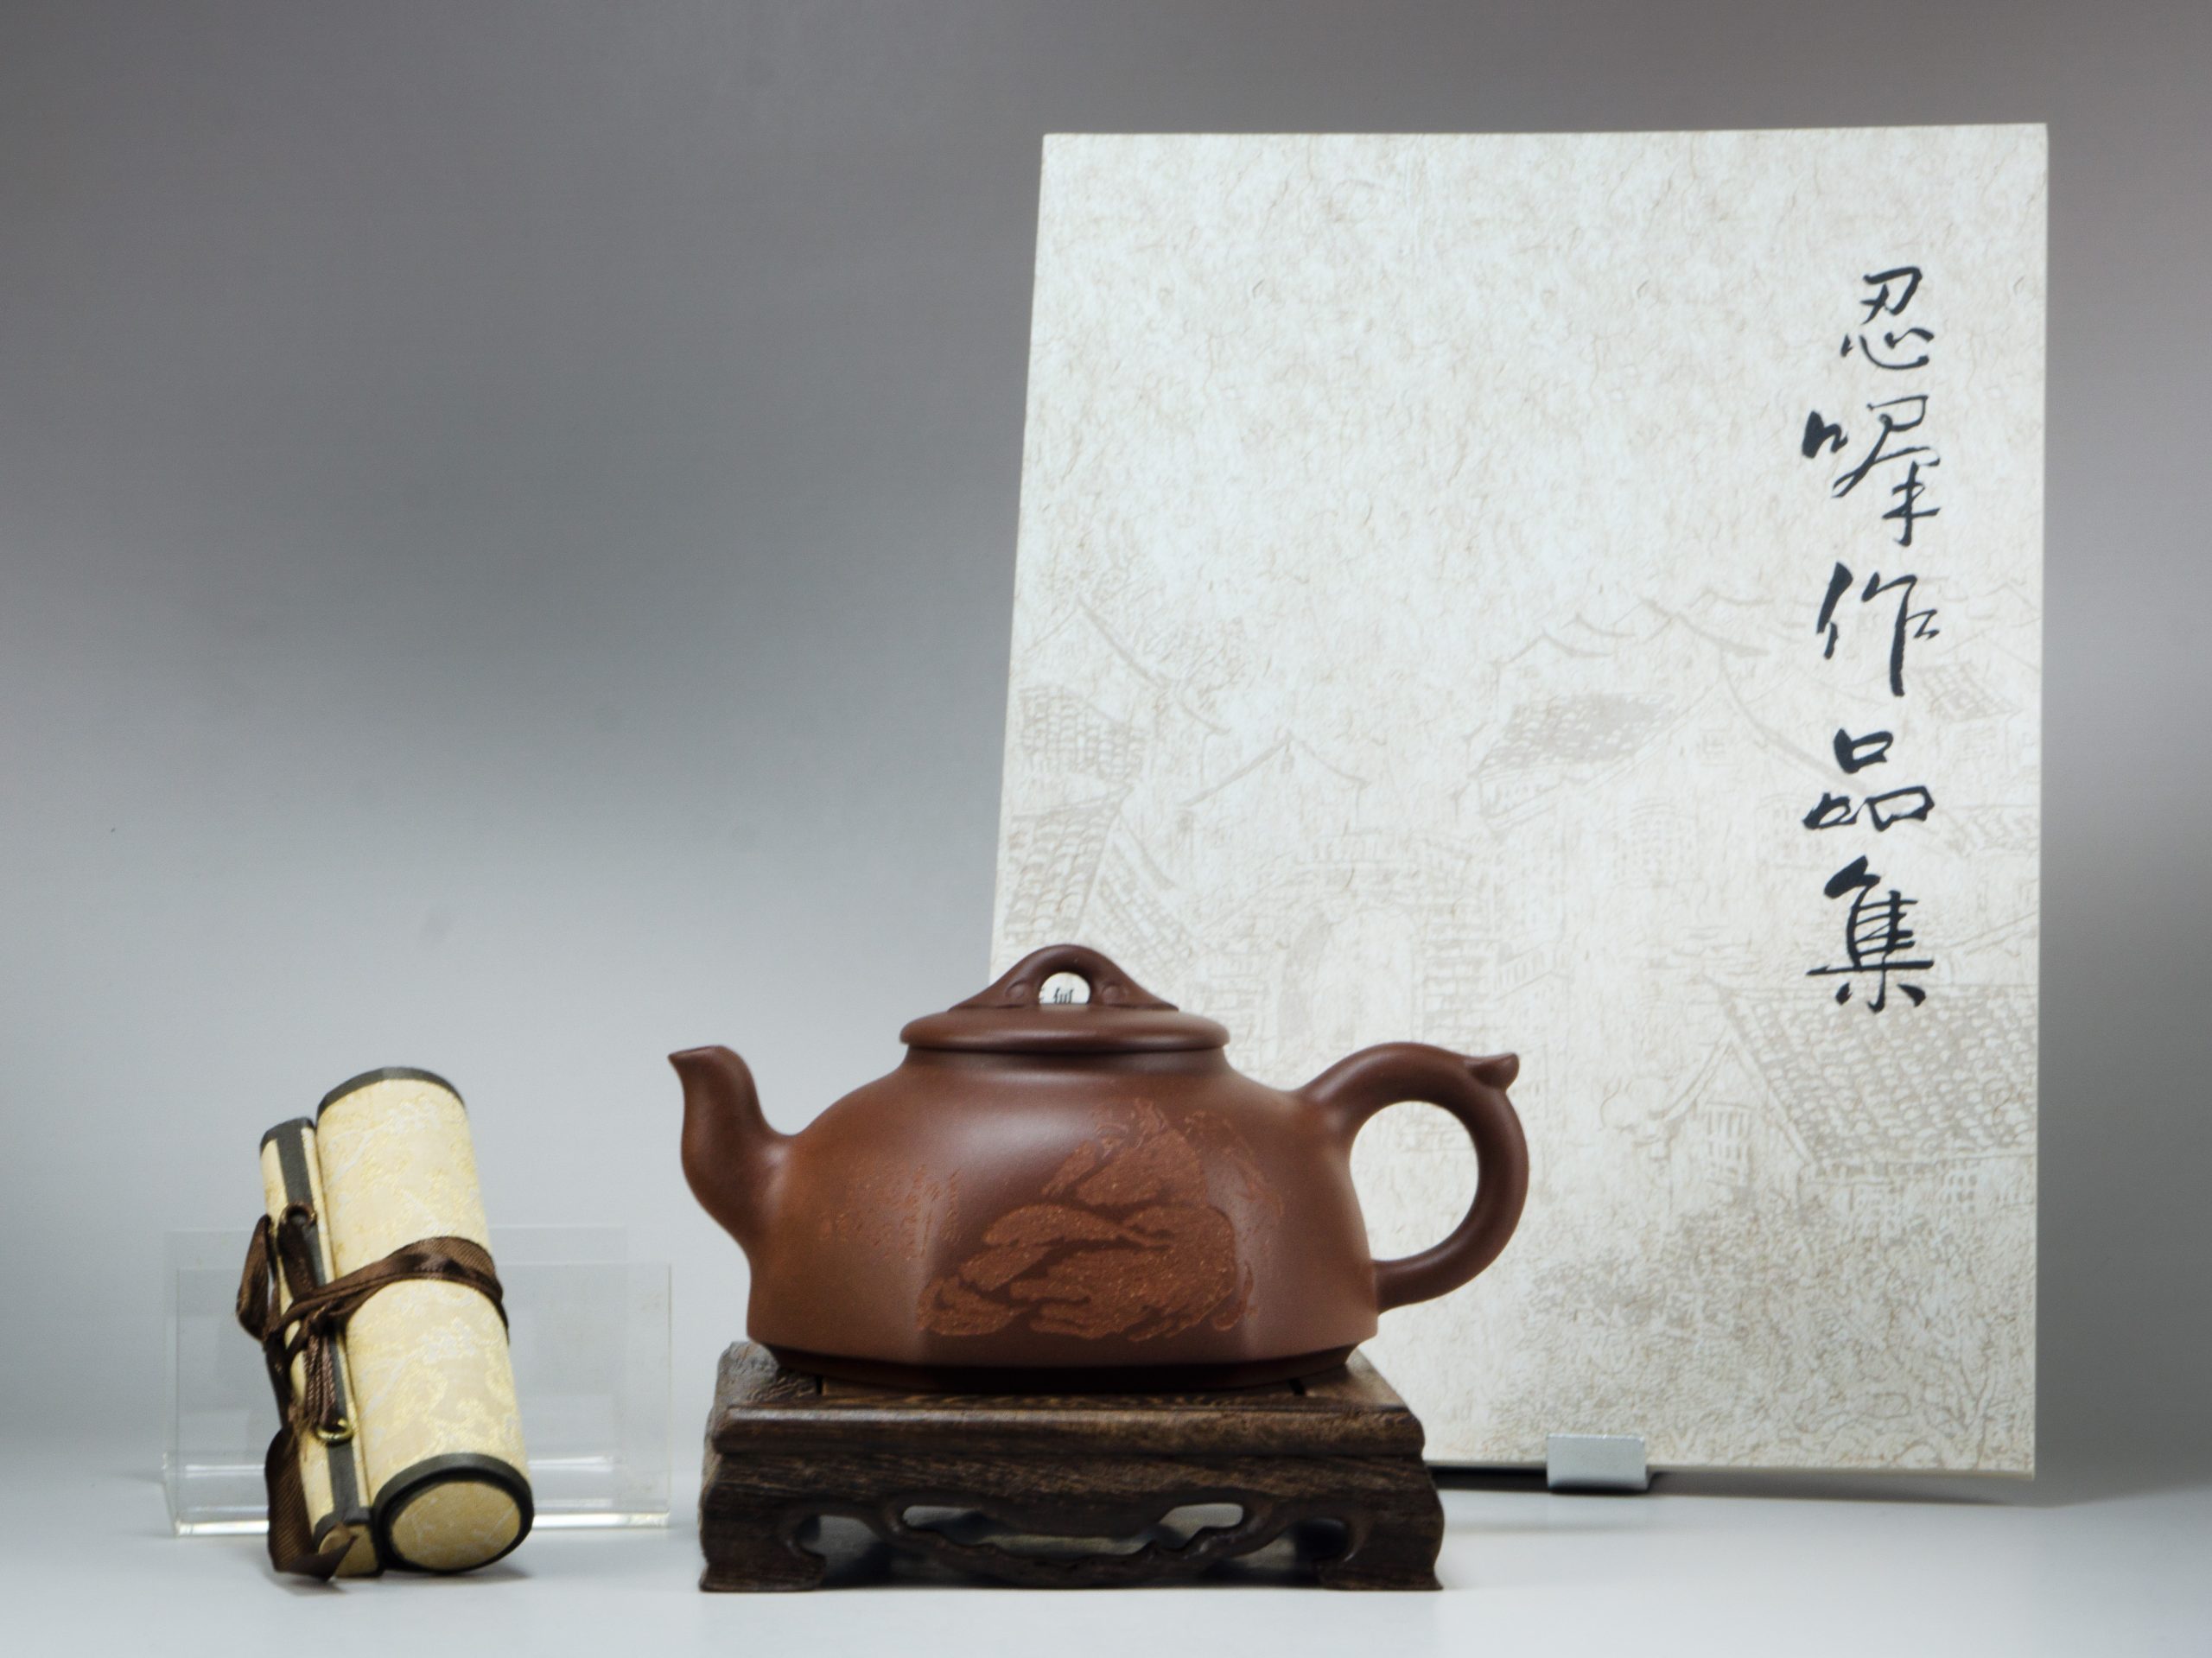 忍作品集